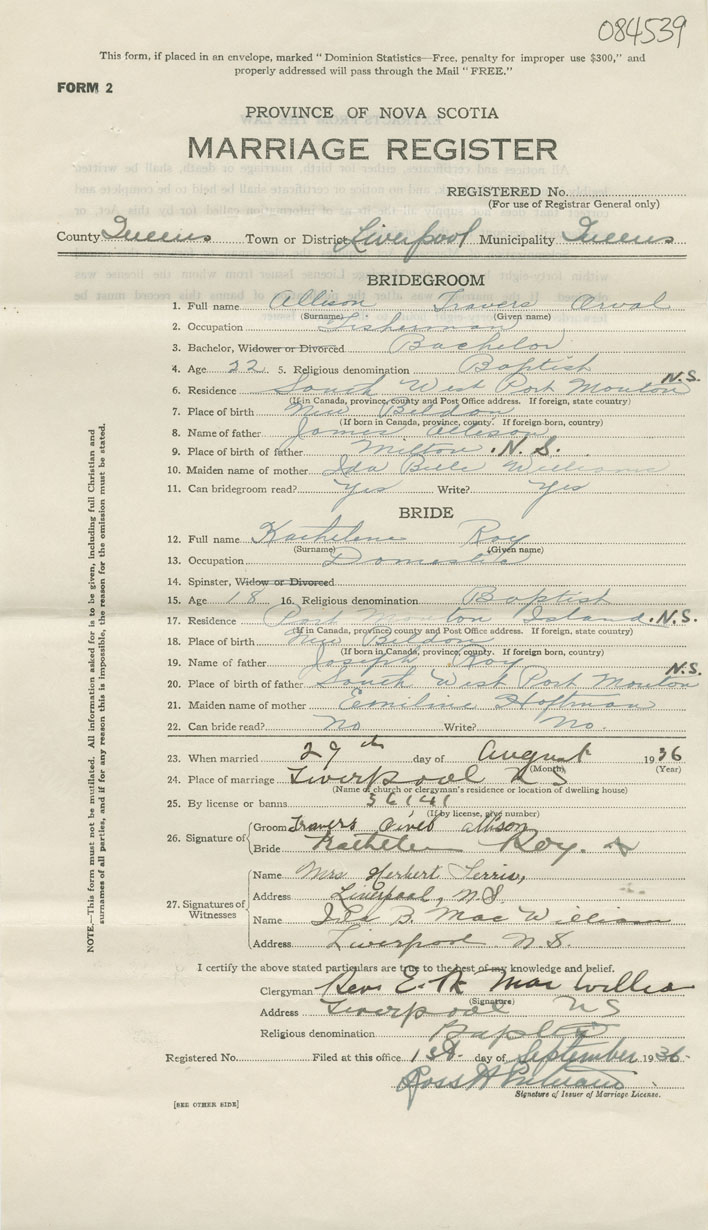 084539
This form, if placed in an envelope, marked "Dominion Statistics—Free, penalty for improper use $300," and
properly addressed will pass through the Mail "FREE."
FORM 2
PROVINCE OF NOVA SCOTIA
MARRIAGE REGISTER
REGISTERED No.
(For use of Registrar General only)
County Queens Town or District Liverpool Municipality Queens
BRIDEGROOM
1. Full name Allison Travers Orval
(Surname) (Given name)
2. Occupation Fisherman
3. Bachelor, Widower or Divorced Bachelor
4. Age 22 5. Religious denomination Baptist
6. Residence South West Port Mouton N.S.
(If in Canada, province, county and Post Office address. If foreign, state country)
7. Place of birth New
(If born in Canada, province, county. If foreign born, country)
8. Name of father James Allison
9. Place of birth of father Milton N.S.
10. Maiden name of mother Ida Belle Williams
11. Can bridegroom read? Yes Write? Yes
BRIDE
12. Full name Kathelene Roy
(Surname) (Given name)
13. Occupation Domestic
14. Spinster, Widow or Divorced
15. Age 18 16. Religious denomination Baptist
17. Residence Port Mouton Island N.S.
(If in Canada, province, county and Post Office address. If foreign, state country)
18. Place of birth New
(If born in Canada, province, county. If foreign born, country)
19. Name of father Joseph Roy
20. Place of birth of father South West Port Mouton N.S.
21. Maiden name of mother Emiline Hoffman
22. Can bride read? No Write? No.
23. When married 29th day of August 1936
(Month) (Year)
24. Place of marriage Liverpool N S
(Name of church or clergyman's residence or location of dwelling house)
25. By license or banns 56141
(If by license, give number)
26. Signature of
Groom Travers allison
Bride Roy.
27. Signatures of Witnesses
Name Mrs Herbert
Address Liverpool, N.S.
Name B. Mac William
Address Liverpool N.S.
I certify the above stated particulars are true to the best of my knowledge and belief.
Clergyman Rev E. Mac
(Signature)
Address Liverpool N S
Religious denomination Baptist
Registered No. Filed at this office 1st. day of September 1936.
Ross
Signature of Issuer of Marriage License.
[SEE OTHER SIDE]
NOTE.—This form must not be mutilated. All information asked for is to be given, including full Christian and
surnames of all parties, and if for any reason this is impossible, the reason for the omission must be stated.